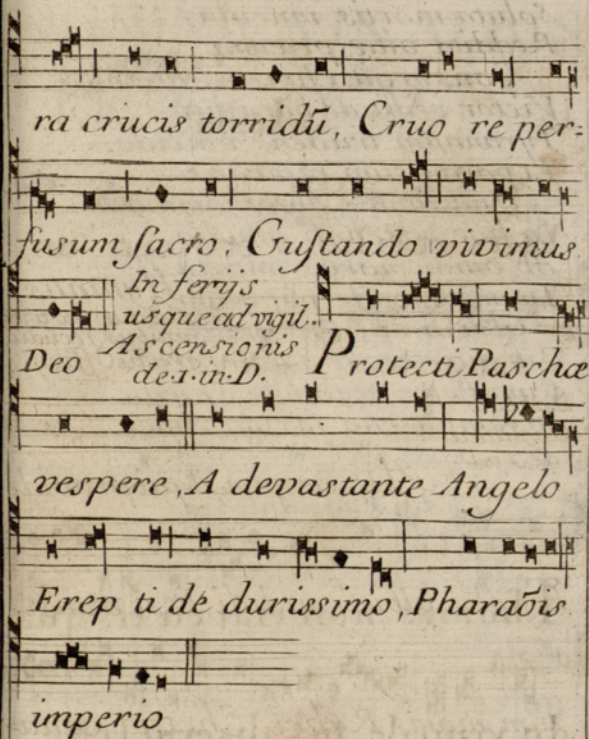 ra crucis torridū, Cruo re per=
fusum sacro. Gustando vivimus
Deo
In ferijs
usque ad vigil.
Ascensionis
de.1.in.D.
Protecti Paschæ
vespere, A devastante Angelo
Erep ti de durissimo, Pharaõis
imperio